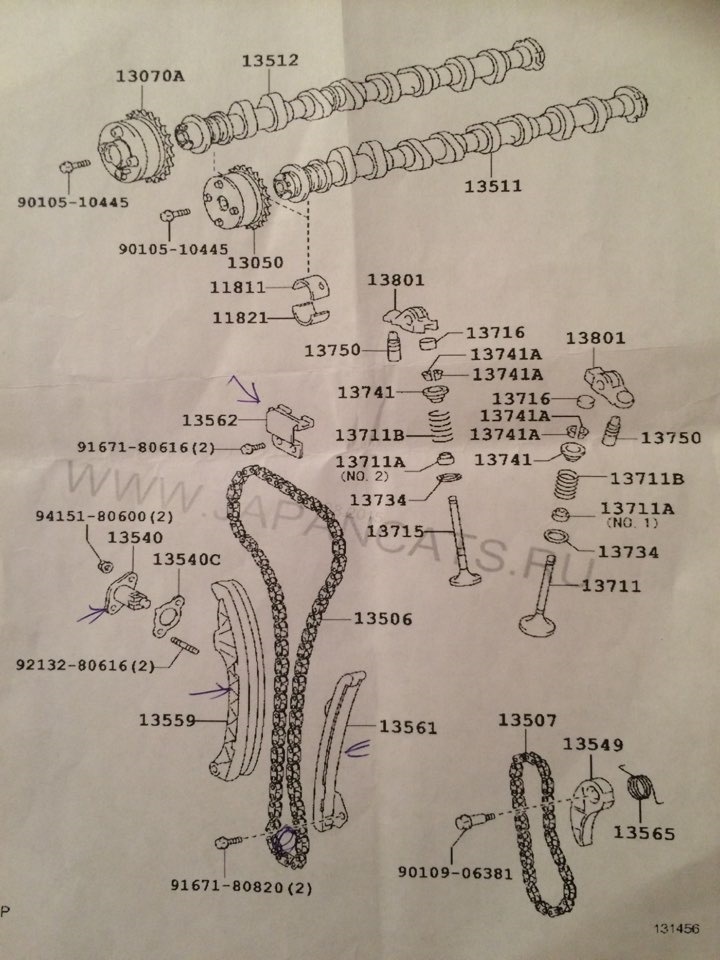 13512
13070A
90105-10445
13511
90105-10445
13050
11811
11821
13801
13716
13750
13741A
13741A
13741
13801
13716
13741A
13741A
13750
13741
13562
91671-80616(2)
13711B
13711A
(NO. 2)
13734
13715
13711B
13711A
(NO. 1)
13734
13711
WWW.JAPANCATS.RU
94151-80600(2)
13540
13540C
92132-80616(2)
13506
13559
13561
91671-80820(2)
13507
13549
13565
90109-06381
P
131456